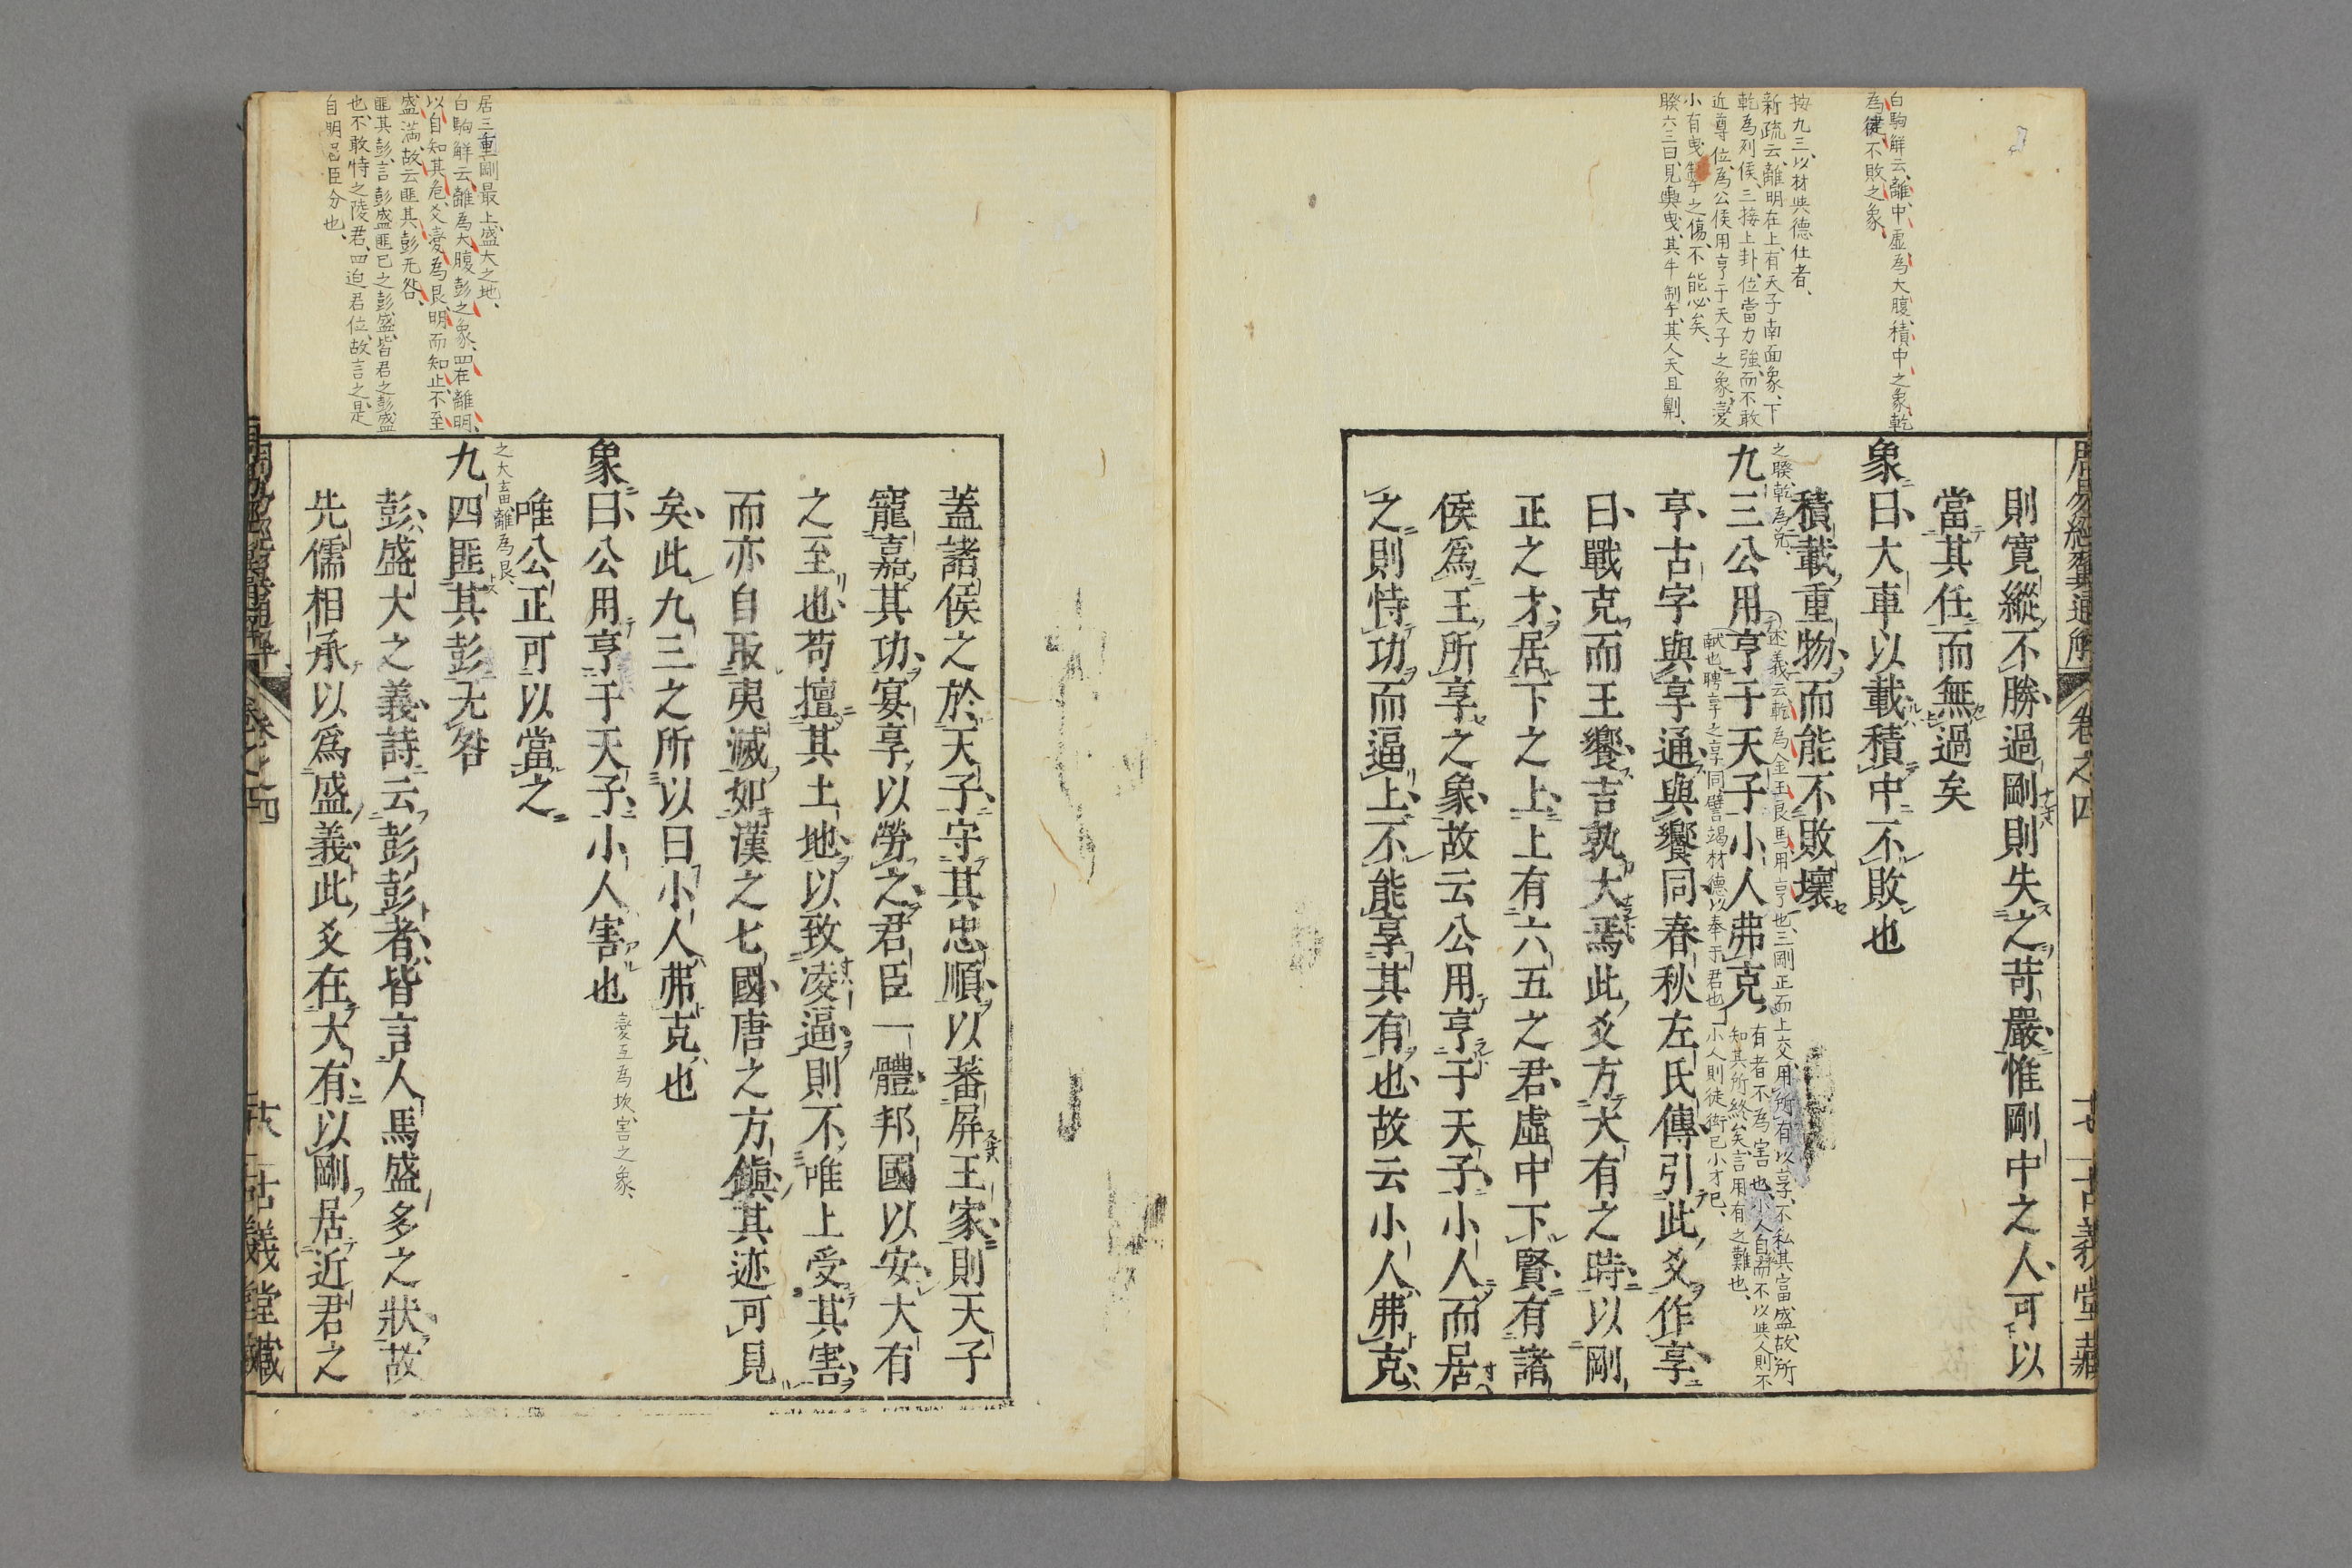 白駒解云、離、中虛、為大腹、積中之象、乾
為健、不敗之象、
按九三、以材與德仕者、
新疏云、離明在上、有天子南面象、下
乾為列侯、三接上卦、位當力強、而不敢
近尊位、為公侯用亨于天子之象、變
小有曳掣之傷、不能必矣、
睽六三曰、見輿曳、其牛掣、其人天且劓、
周易經翼通解
卷之四
十七
古義堂藏
則寬縱不勝過剛則失之苛嚴惟剛中之人可以
當其任而無過矣
象曰大車以載積中不敗也
積載重物而能不敗壞
之睽、乾為兌、
九三公用亨于天子小人弗克
述義云、乾為金玉良馬、用亨也、三剛正而上交、用所有以享、不私其富盛、故所
有者不為害也、小人自富而不以與人則不
知其所終矣、言用有之難也、
献也、聘享之享同、譬竭材德以奉于君也、
小人則徒衒己小才已、
亨古字與享通與饗同春秋左氏傳引此爻作享
曰戰克而王饗吉孰大焉此爻方大有之時以剛
正之才居下之上上有六五之君虛中下賢有諸
侯爲王所享之象故云公用亨于天子小人而居
之則恃功而逼上不能享其有也故云小人弗克
居三重剛最上、盛大之地、
白駒解云、離為大腹、彭之象、四在離明、
以自知其危、爻變為艮、明而知止、不至
盛滿、故云匪其彭无咎、
匪其彭、言彭盛匪己之彭盛、皆君之彭盛
也、不敢恃之陵君、四迫君位、故言之、是
自明邑臣分也、
蓋諸侯之於天子守其忠順以蕃屏王家則天子
寵嘉其功宴享以勞之君臣一體邦國以安大有
之至也苟擅其土地以致凌逼則不唯上受其害
而亦自取夷滅如漢之七國唐之方鎮其迹可見
矣此九三之所以曰小人弗克也
象曰公用亨于天子小人害也
變互為坎、害之象、
唯公正可以當之
之大畜、離為艮、
九四匪其彭无咎
彭盛大之義詩云彭彭者皆言人馬盛多之狀故
先儒相承以爲盛義此爻在大有以剛居近君之
周易經翼通解
卷之四
古義堂藏